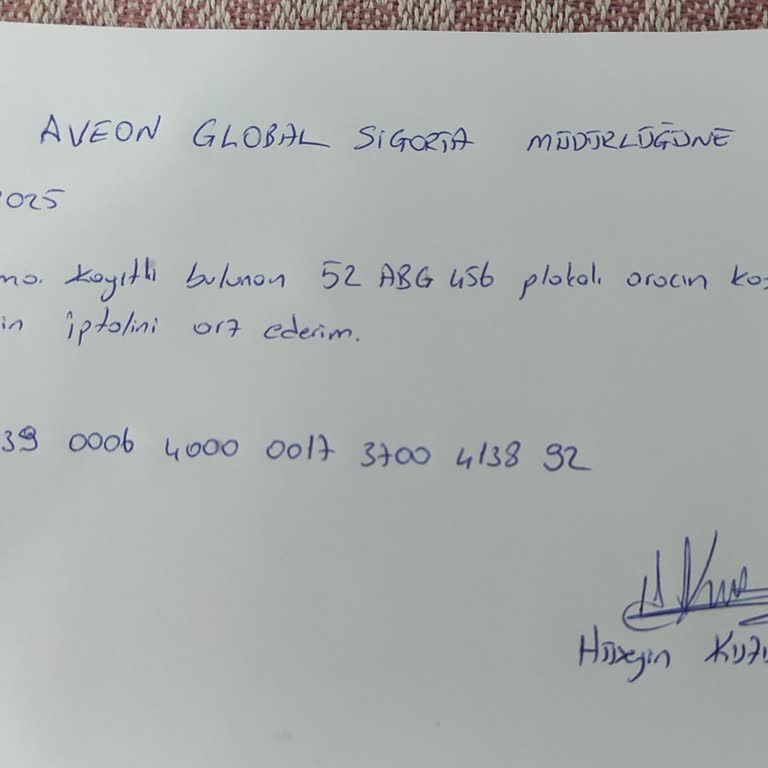 AVEON GLOBAL SİGORTA MÜDÜRLÜĞÜNE
025
kayıtlı bulunan 52 ABG 456 plakalı aracın
iptalini arz ederim.
39 0006 4000 0017 3700 4138 92
Hüseyin